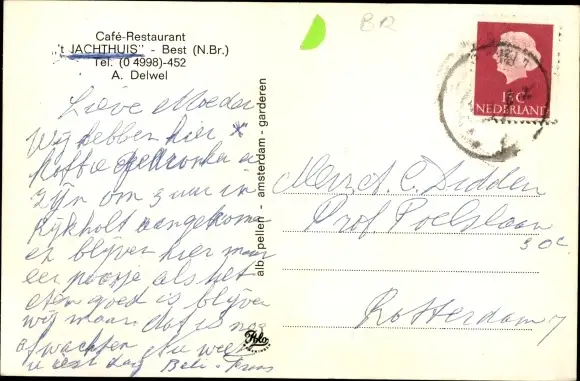 Café-Restaurant
't JACHTHUIS" - Best (N.Br.)
Tel. (0 4998)-452
A. Delwel
Lieve Moeder
Wij hebben hier
koffie gedronken en
zijn om 3 uur in
Rijkholt aangekomen
en blijven hier maar
een poosje als het
eten goed is blijven
wij maar dat is nog
afwachten nu weet
u dag
alb. pellen - amsterdam - garderen
B12
15 C
NEDERLAND
C.
Prof Poelslaan
30c
Rotterdam 7